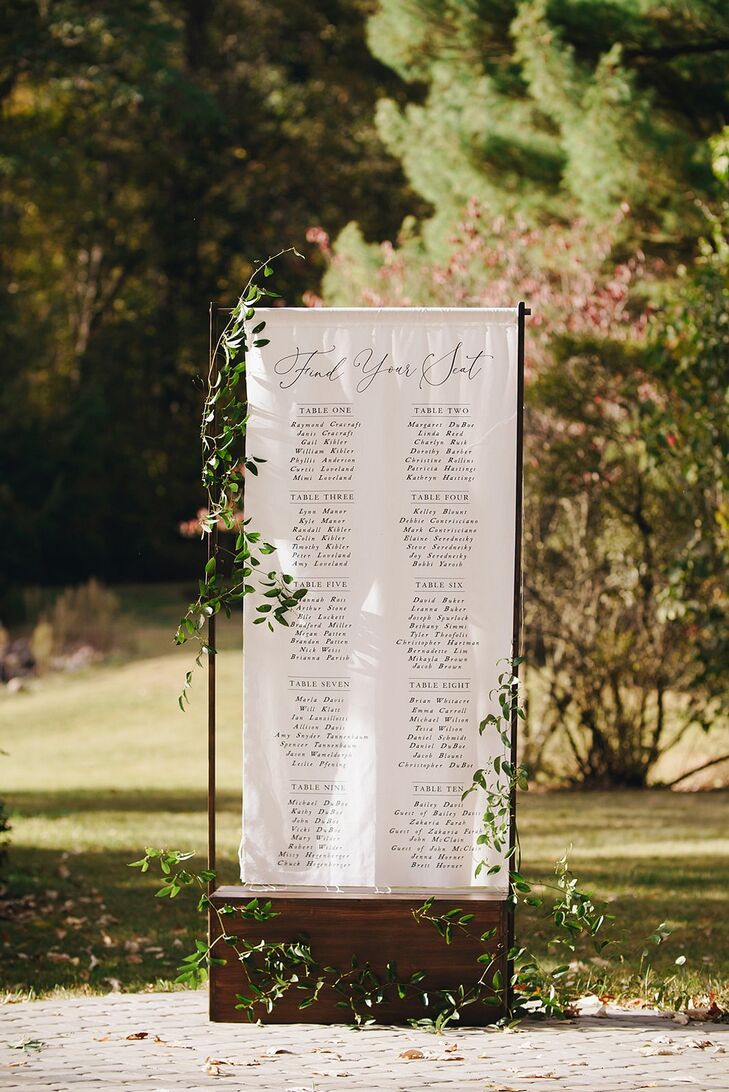 Find Your Seat
TABLE ONE
Raymond Cracraft
Janis Cracraft
Gail Kibler
William Kibler
Phyllis Anderson
Curtis Loveland
Mimi Loveland
TABLE TWO
Margaret DuBoe
Linda Reed
Charlyn Ruik
Dorothy Barber
Christine Rollins
Patricia Hastings
Kathryn Hastings
TABLE THREE
Lynn Manor
Kyle Manor
Randall Kibler
Colin Kibler
Timothy Kibler
Peter Loveland
Amy Loveland
TABLE FOUR
Kelley Blount
Debbie Contrisciano
Mark Contrisciano
Elaine Serednesky
Steve Serednesky
Joy Serednesky
Bobbi Yarosh
TABLE FIVE
Hannah Ross
Arthur Stone
Elle Lockett
Bradford Miller
Megan Patten
Brandon Patten
Nick Weiss
Brianna Parish
TABLE SIX
David Buker
Leanna Buker
Joseph Spurlock
Bethany Simms
Tyler Theofilis
Christopher Hartman
Bernadette Lim
Mikayla Brown
Jacob Brown
TABLE SEVEN
Marla Davis
Will Klatt
Ian Lanzillotti
Allison Davis
Amy Snyder Tannenbaum
Spencer Tannenbaum
Jason Wameldorph
Leslie Pfening
TABLE EIGHT
Brian Whitacre
Emma Carroll
Michael Wilson
Tessa Wilson
Daniel Schmidt
Daniel DuBoe
Jacob Blount
Christopher DuBoe
TABLE NINE
Michael DuBoe
Kathy DuBoe
John DuBoe
Vicki DuBoe
Mary Wilder
Robert Wilder
Missy Hegenberger
Chuck Hegenberger
TABLE TEN
Bailey Davis
Guest of Bailey Davis
Zakaria Farah
Guest of Zakaria Farah
John McClain
Guest of John McClain
Jenna Horner
Brett Horner